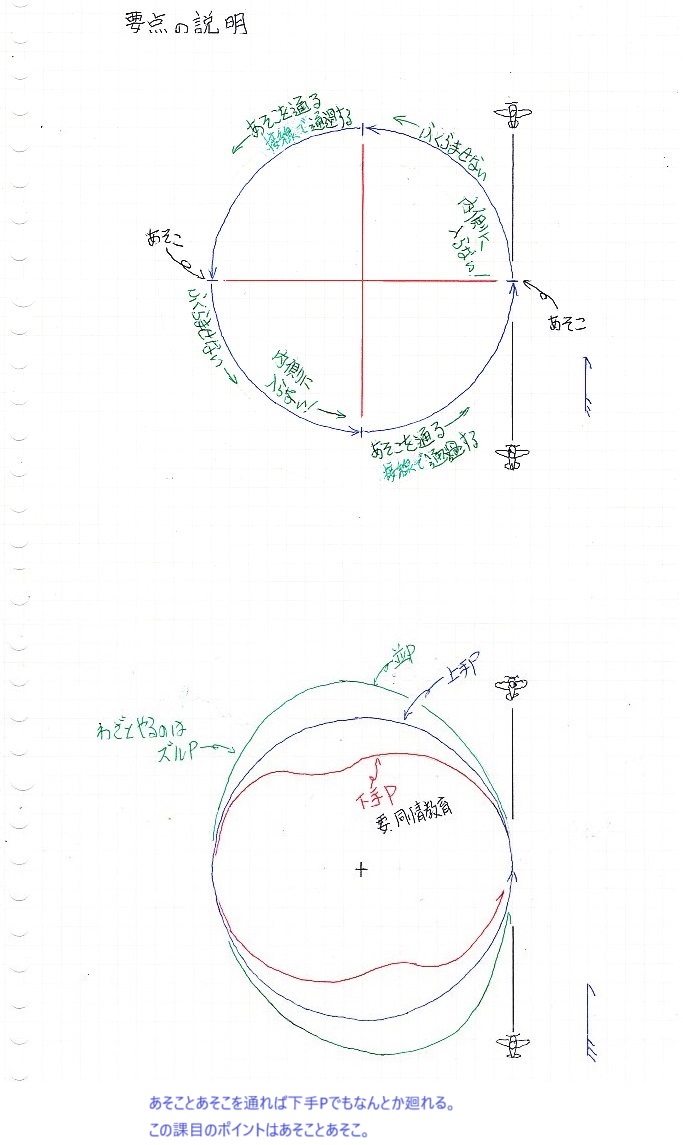 要点の説明
あそこを通る
接線で通過する
ふくらませない
内側に
入らない!
あそこ
あそこ
ふくらませない
内側に
入らない!
あそこを通る
接線で通過する
並P
上手P
わざとやるのは
ズルP
下手P
要
教育
あそことあそこを通れば下手Pでもなんとか廻れる。
この課目のポイントはあそことあそこ。